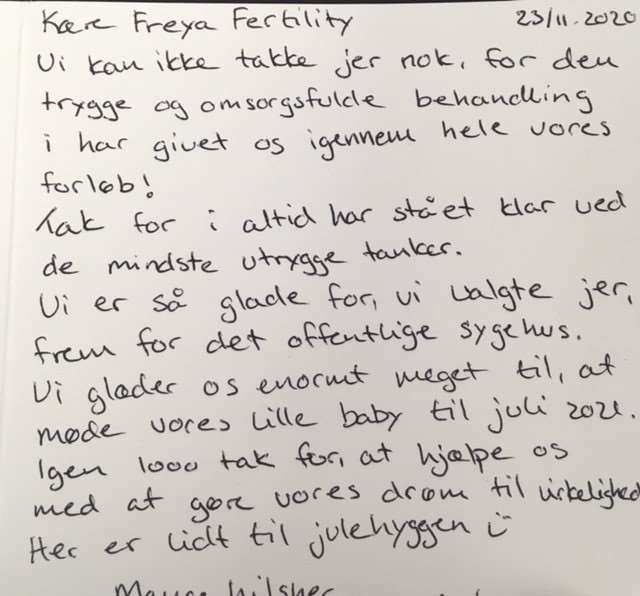 Kære Freya Fertility 23/11.2020
Vi kan ikke takke jer nok, for den
trygge og omsorgsfulde behandling
i har givet os igennem hele vores
forløb!
Tak for i altid har stået klar ved
de mindste utrygge tanker.
Vi er så glade for, vi valgte jer,
frem for det offentlige sygehus.
Vi glæder os enormt meget til, at
møde vores lille baby til juli 2021.
Igen 1000 tak for, at hjælpe os
med at gøre vores drøm til virkelighed
Her er lidt til julehyggen :)